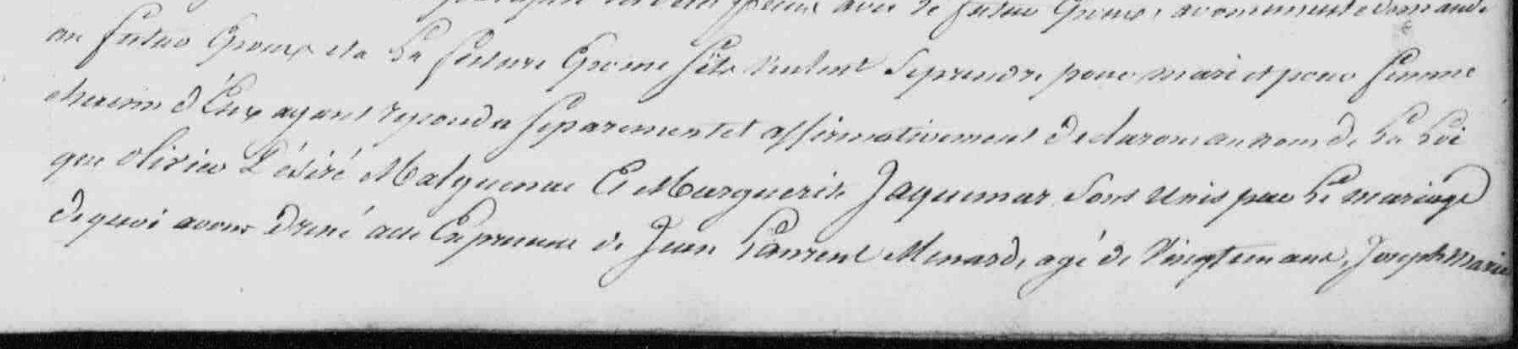 avec le futur Epoux, avons ensuite demandé
au futur Epoux et a La future Epouse s'ils veulent se prendre pour mari et pour femme
chacun d'Eux ayant repondu separement et affirmativement declarons au nom de La Loi
que Olivier Désiré Malquenac Et Marguerite Jaquemar Sont Unis par Le mariage
de quoi avons dressé acte En presence de Jean Laurent Menard, agé de Vingt un ans, Joseph Marie